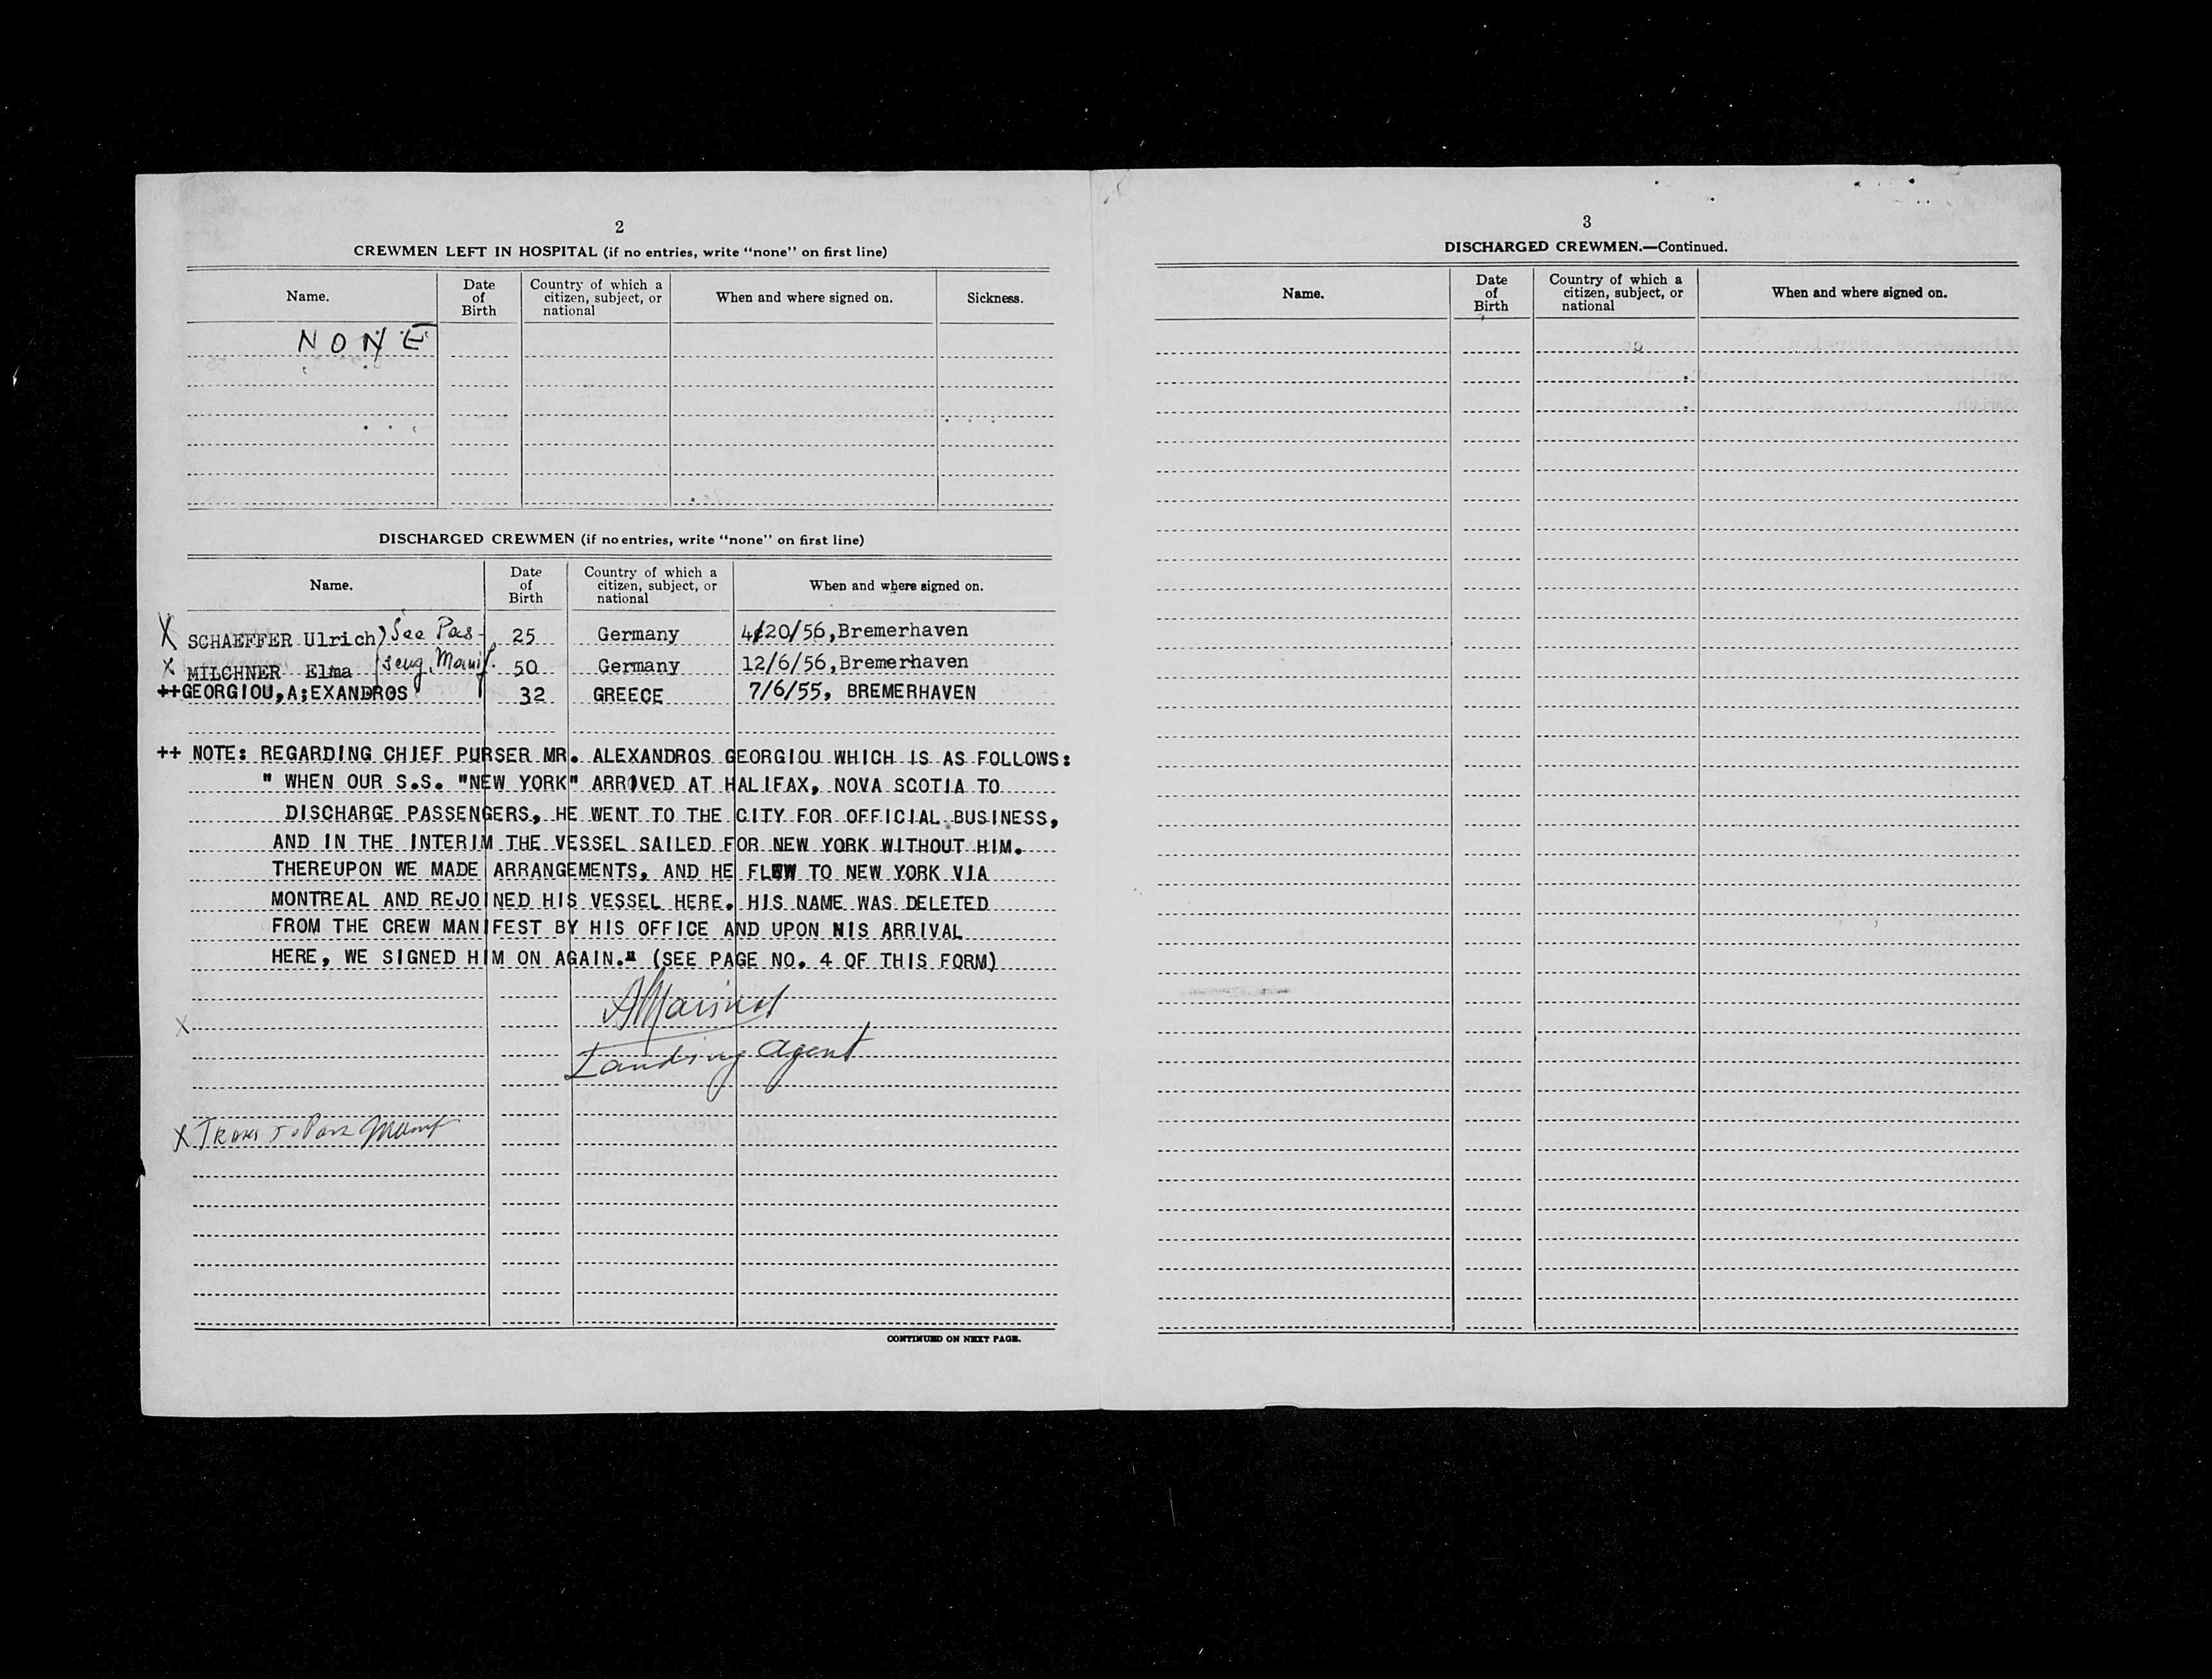 2
CREWMEN LEFT IN HOSPITAL (if no entries, write "none" on first line)
Name. Date of Birth Country of which a citizen, subject, or national When and where signed on. Sickness.
NONE
DISCHARGED CREWMEN (if no entries, write "none" on first line)
Name. Date of Birth Country of which a citizen, subject, or national When and where signed on.
X SCHAEFFER Ulrich) See Pas- 25 Germany 4/20/56,Bremerhaven
X MILCHNER Elma seng. Manif. 50 Germany 12/6/56,Bremerhaven
++GEORGIOU,A;EXANDROS 32 GREECE 7/6/55, BREMERHAVEN
++ NOTE: REGARDING CHIEF PURSER MR. ALEXANDROS GEORGIOU WHICH IS AS FOLLOWS:
" WHEN OUR S.S. "NEW YORK" ARROVED AT HALIFAX, NOVA SCOTIA TO
DISCHARGE PASSENGERS, HE WENT TO THE CITY FOR OFFICIAL BUSINESS,
AND IN THE INTERIM THE VESSEL SAILED FOR NEW YORK WITHOUT HIM.
THEREUPON WE MADE ARRANGEMENTS, AND HE FLEW TO NEW YORK VIA
MONTREAL AND REJOINED HIS VESSEL HERE. HIS NAME WAS DELETED
FROM THE CREW MANIFEST BY HIS OFFICE AND UPON NIS ARRIVAL
HERE, WE SIGNED HIM ON AGAIN." (SEE PAGE NO. 4 OF THIS FORM)
X
Landing Agent
X Trans to Pass Manif
CONTINUED ON NEXT PAGE.
3
DISCHARGED CREWMEN.—Continued.
Name. Date of Birth Country of which a citizen, subject, or national When and where signed on.